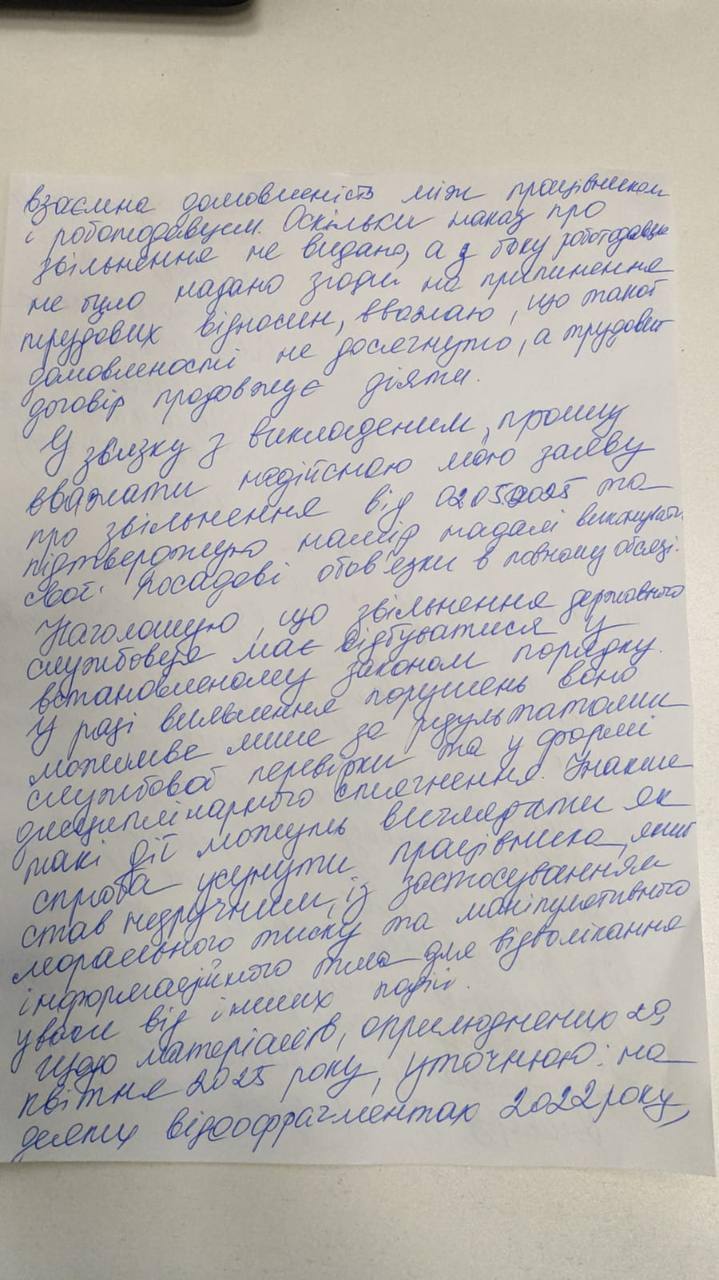 взаємна домовленість між працівником
і роботодавцем. Оскільки наказ про
звільнення не видано, а з боку роботодавця
не було надано згоди на припинення
трудових відносин, вважаю, що такої
домовленості не досягнуто, а трудовий
договір продовжує діяти.
У звязку з викладеним, прошу
вважати недійсною мою заяву
про звільнення від 02052025 та
підтверджую намір надалі виконувати
свої посадові обов'язки в повному обсязі.
Наголошую, що звільнення державного
службовця має відбуватися у
встановленому законом порядку.
У разі виявлення порушень воно
можливе лише за результатами
службової перевірки та у формі
дисциплінарного стягнення. Інакше
такі дії можуть виглядати як
спроба усунути працівника, який
став незручним, із застосуванням
морального тиску та маніпулятивного
інформаційного тла для відволікання
уваги від інших подій.
Щодо матеріалів, оприлюднених 29
квітня 2025 року, уточнюю: на
деяких відеофрагментах 2022 року,